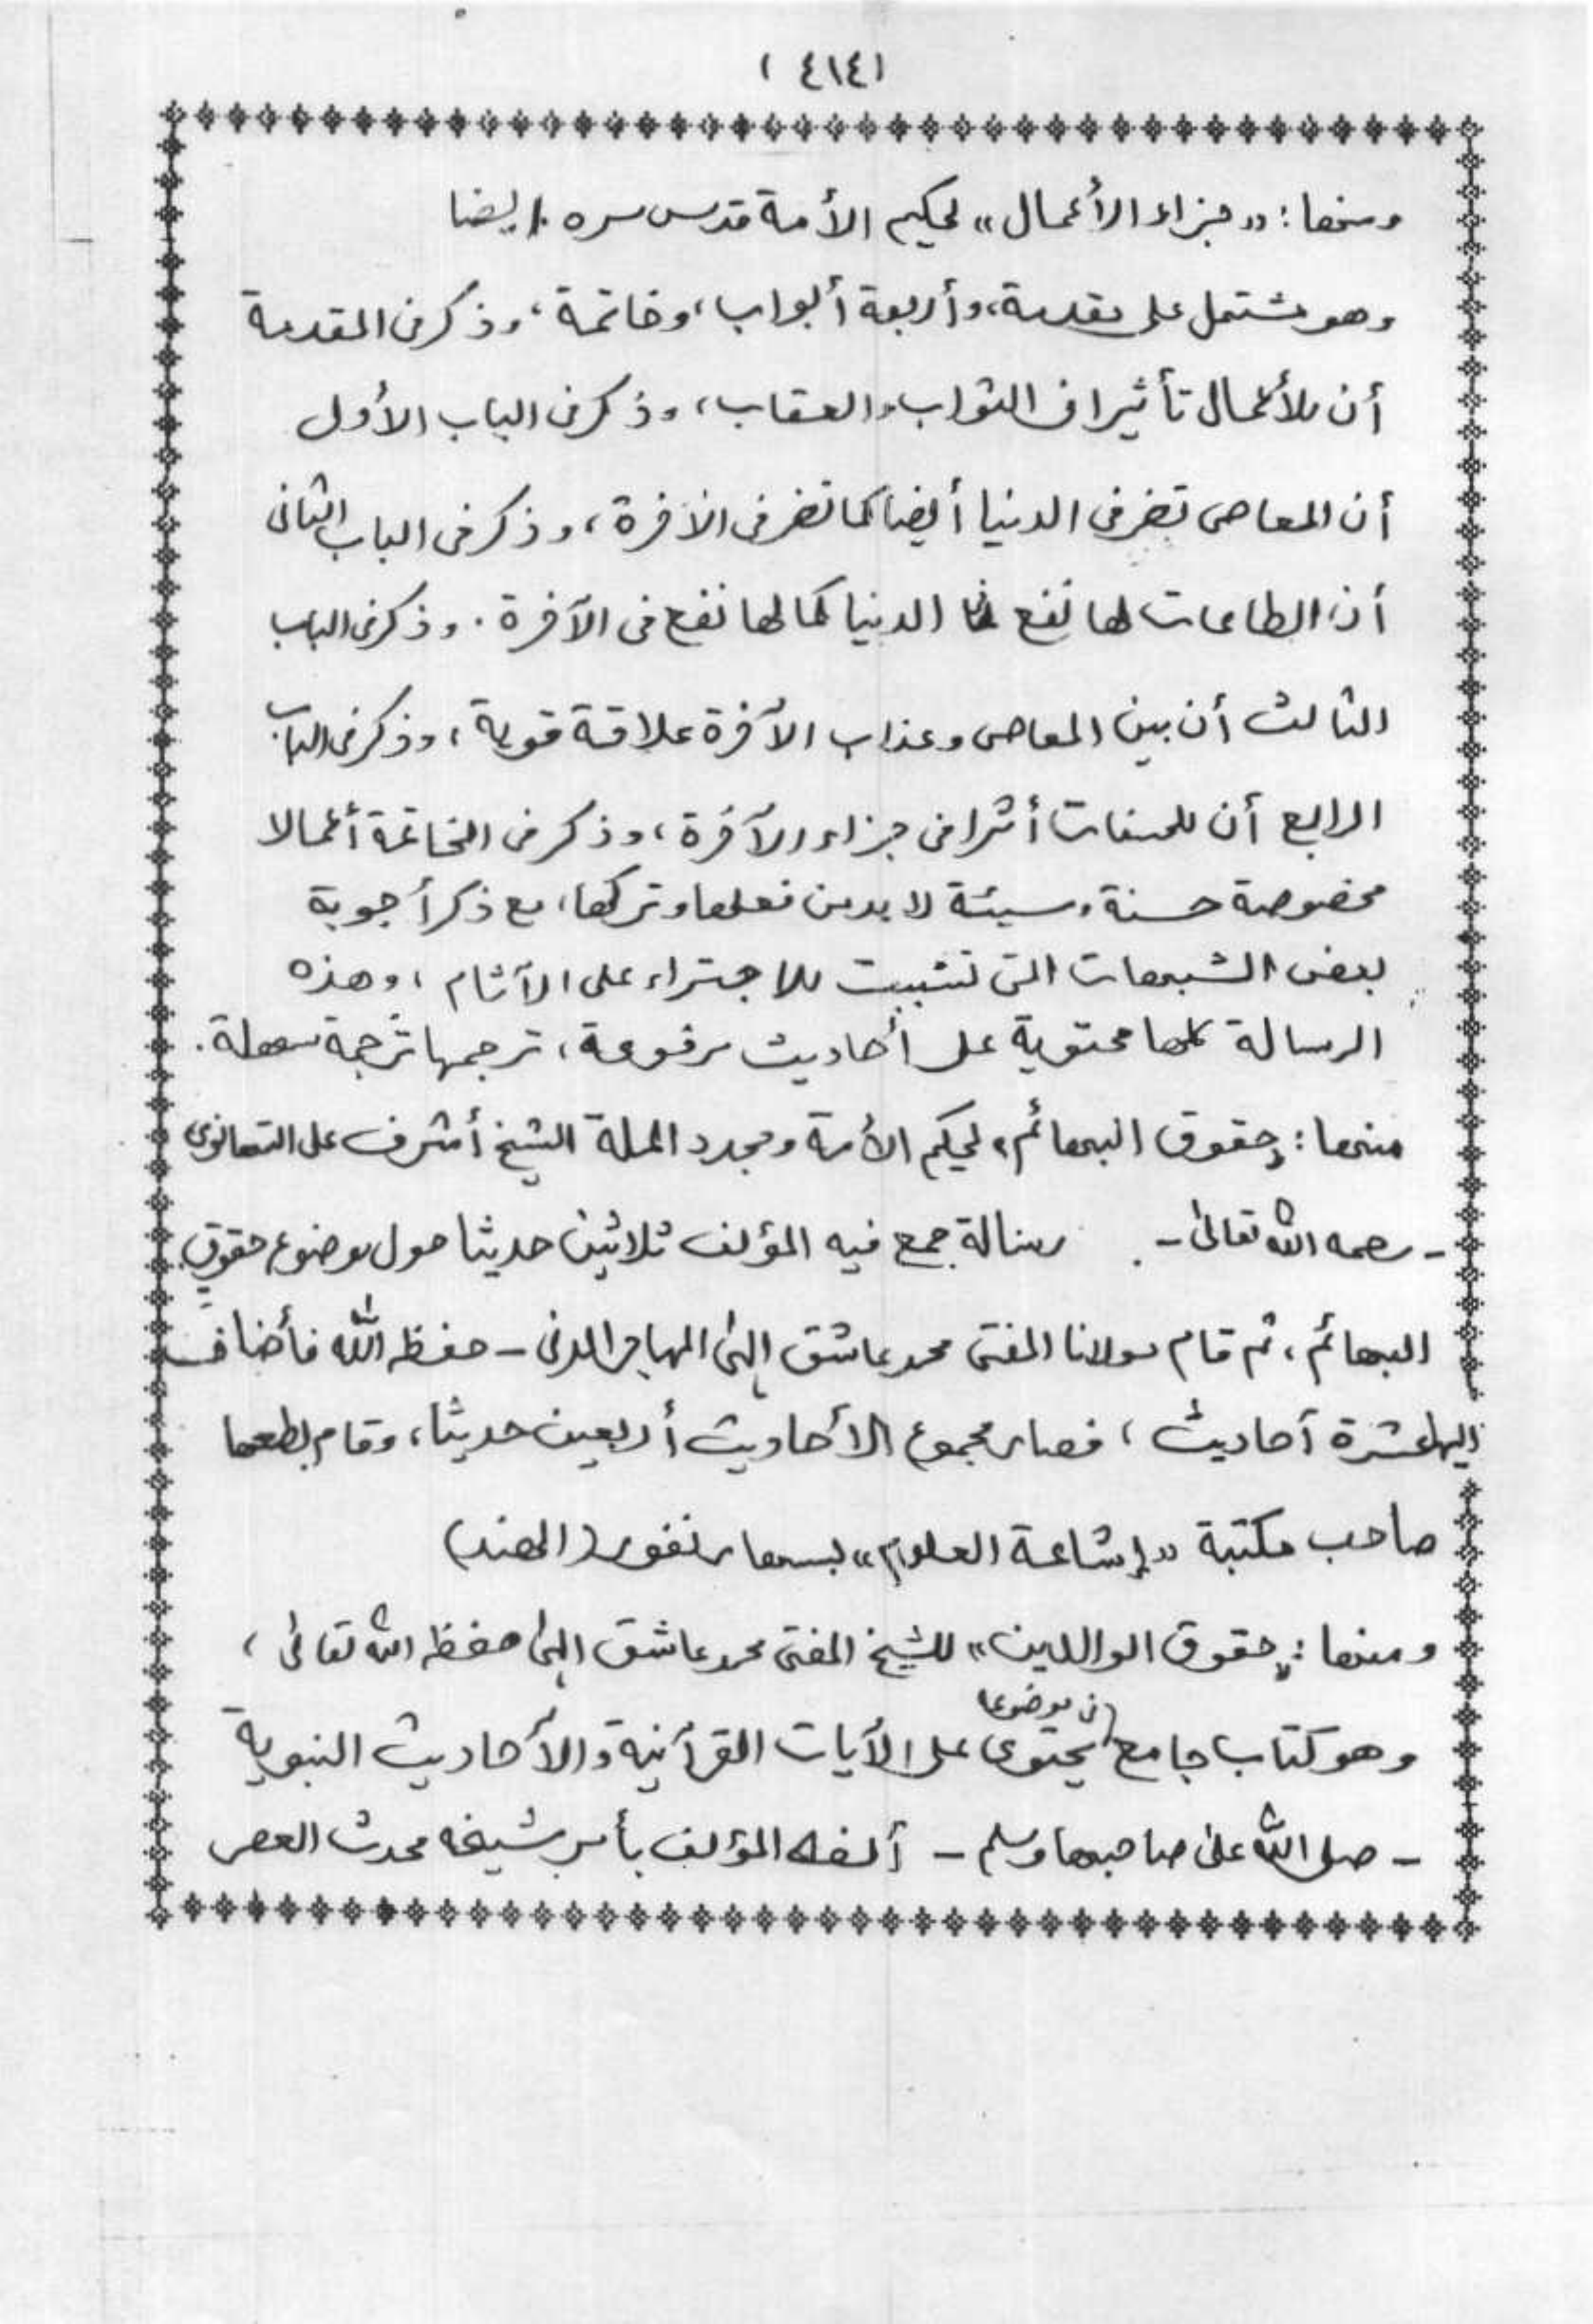 (٤١٤)
ومنها: «جزاء الأعمال» لحكيم الأمة قدس سره أيضا
وهو مشتمل على مقدمة، وأربعة أبواب، وخاتمة، وذكر في المقدمة
أن للأعمال تأثيرا في الثواب والعقاب، وذكر في الباب الأول
أن المعاصي تضر في الدنيا أيضا كما تضر في الآخرة، وذكر في الباب الثاني
أن الطاعات لها نفع في الدنيا كما لها نفع في الآخرة. وذكر في الباب
الثالث أن بين المعاصي وعذاب الآخرة علاقة قوية، وذكر في الباب
الرابع أن للحسنات أثرا في جزاء الآخرة، وذكر في الخاتمة أعمالا
مخصوصة حسنة وسيئة لا بد من فعلها وتركها، مع ذكر أجوبة
بعض الشبهات التي تثبت للاجتراء على الآثام، وهذه
الرسالة كلها محتوية على أحاديث مرفوعة، ترجمها ترجمة سهلة.
منها: «حقوق البهائم» لحكيم الأمة ومجدد الملة الشيخ أشرف علي التهانوي
- رحمه الله تعالى -. رسالة جمع فيه المؤلف ثلاثين حديثا حول موضوع حقوق
البهائم، ثم قام مولانا المفتي محمد عاشق إلهي المهاجر المدني - حفظه الله فأضاف
إليها عشرة أحاديث، فصار مجموع الأحاديث أربعين حديثا، وقام بطبعها
صاحب مكتبة «إشاعة العلوم» بسهارنفور (الهند)
ومنها: «حقوق الوالدين» للشيخ المفتي محمد عاشق إلهي حفظه الله تعالى،
وهو كتاب جامع في موضوعا يحتوي على الآيات القرآنية والأحاديث النبوية
- صلى الله على صاحبها وسلم - ألفه المؤلف بأمر شيخه محدث العصر